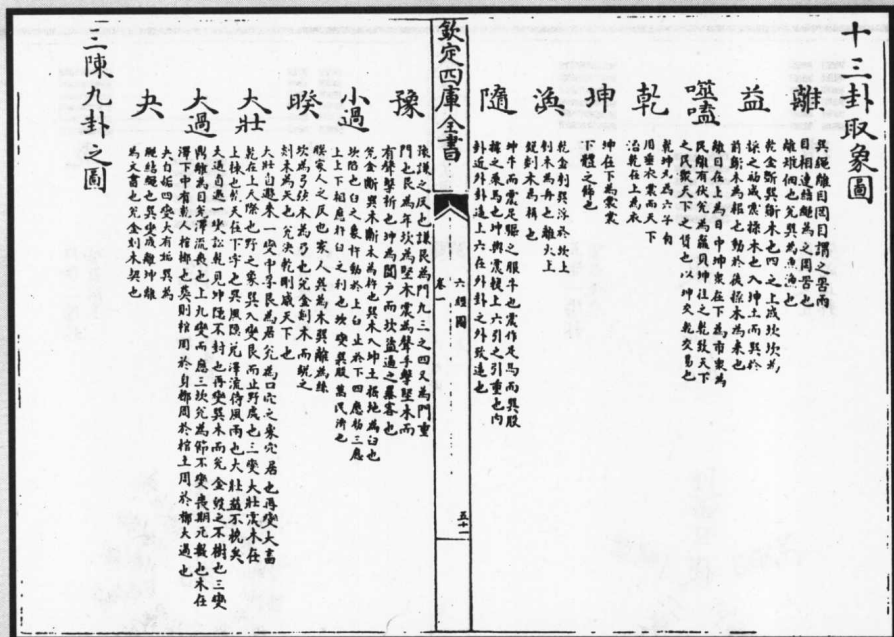 十三卦取象圖
離
巽繩離目罔目謂之罟兩
目相連結繩為之罔罟也
離雉佃也兌巽為魚漁也
益
乾金斲巽斲木也四之上成坎坎為
揉之初成震揉木也入坤土而巽於
前斲木為耜也動於後揉木為耒也
噬嗑
離日在上為日中坤眾在下為市眾為
民離有伏兌為蠃貝坤往之乾致天下
之民聚天下之貨也以坤交乾交易也
乾
乾坤九為六子旬
用垂衣裳而天下
治乾在上為衣
坤
坤在下為裳裳
下體之飾也
渙
乾金刳巽浮於坎上
刳木為舟也離火上
銳剡木為楫也
隨
坤牛而震足驅之服牛也震作足馬而巽股
據之乘馬也坤輿震輹上六引之引重也內
卦近外卦遠上六在外卦之外致遠也
欽定四庫全書
六經圖
卷一
五十二
豫
豫謙之反也謙艮為門九三之四又為門重
門也艮為手坎為堅木震為聲手擊堅木而
有聲擊柝也坤為闔戶而坎盜逼之暴客也
小過
兌金斷巽木斷木為杵也巽木入坤土掘地為臼也
坎陷也臼之象杵動於上臼止於下四應初三應
上上下相應杵臼之利也坎變巽股萬民濟也
睽
睽家人之反也家人巽為木巽離為絲
坎為弓弦木為弧也兌金剡木而銳之
剡木為矢也兌決乾剛威天下也
大壯
大壯自遯來一變中孚艮為居兌為口穴之象穴居也再變大畜
乾在上天際也野之象巽入變艮而止野處也三變大壯震木在
上棟也乾天在下宇也巽風隱兌澤流待風雨也大壯益不撓矣
大過
大過自遯一變訟乾見坤隱不封也再變巽木而兌金毀之不樹也三變
鼎離為目兌澤流喪也上九變而應三坎兌為節不變喪期无數也木在
澤下中有乾人棺槨也葬則棺周於身槨周於棺土周於槨大過也
夬
夬自姤四變大有姤巽為
繩結繩也巽變成離坤離
為文書也兌金刻木契也
三陳九卦之圖